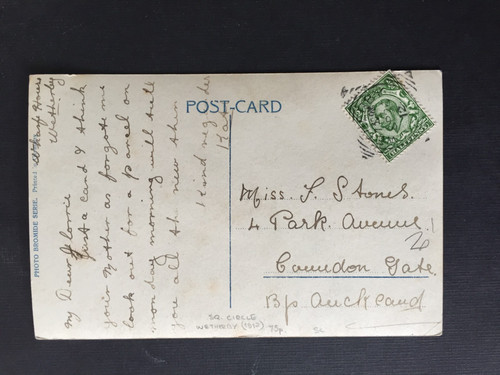 W Sharp House
Wetherby
My Dear Florrie
Just a Card I think
your Mother as forgot me
look out for a parcel on
monday morning will tell
you all the new then
Kind regards
Kat
PHOTO BROMIDE SERIE. Printed
POST-CARD
Miss. F. Stones.
4. Park Avenue
Camdon Gate.
Bp Auckland
SQ CIRCLE
WETHERBY (1912) 75p.